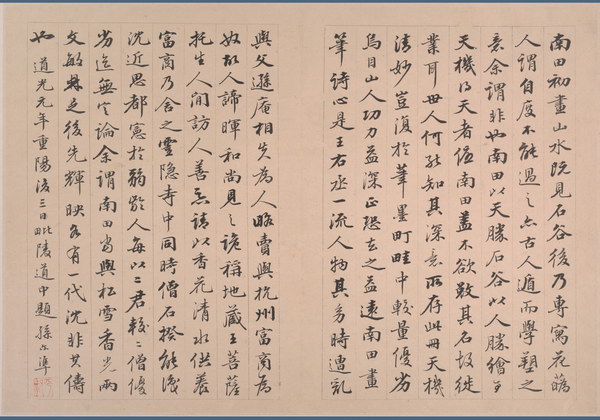 南田初畫山水既見石谷後乃專寫花
人謂自度不能過之亦古人遁而學塑之
意余謂非也南田以天勝石谷以人勝繪事
天機得天者優南田蓋不欲其石故徒
業耳世人何能知其深意所存此冊天機
清妙豈復於筆墨町畦中較量優劣
烏目山人功力益深正恐去之益遠南田畫
筆詩心是王右丞一流人物其少時遭亂
與父遜庵相失為人略賣與杭州富商為
奴故人諦暉和尚見之詭稱地藏王菩薩
托生人間訪人善惡請以香花清水供養
富商乃舍之靈隱寺中同時僧石揆能識
沈近思都憲於弱齡人每以二君較二僧優
劣迄無定論余謂南田當與松雪香光兩
文敏之後先輝映各有一代沈非其儔
也 道光元年重陽後三日毗陵道中題孫爾準